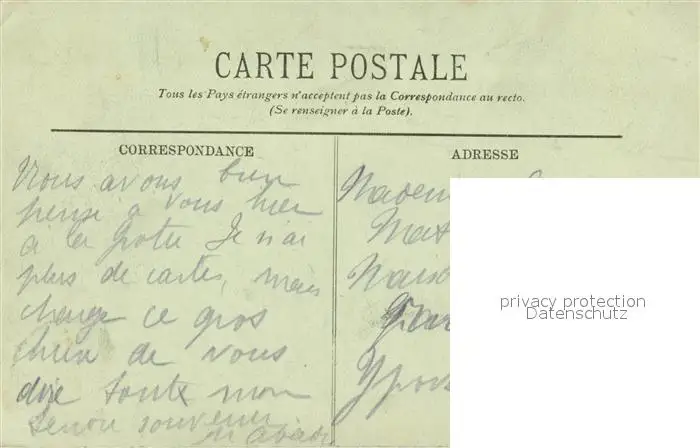 CARTE POSTALE
Tous les Pays étrangers n'acceptent pas la Correspondance au recto.
(Se renseigner à la Poste).
CORRESPONDANCE
ADRESSE
Nous avons bien
pensé a vous hier
à la Grotte Je n'ai
plus de cartes, mais
charge ce gros
chien de vous
dire toute mon
souvenir
Mat
Maiso
privacy protection
Datenschutz